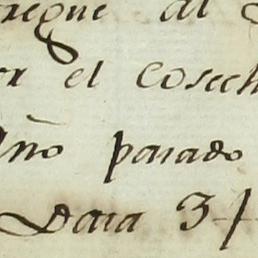 regue al
or el Cosech
Año pasado
Data 3